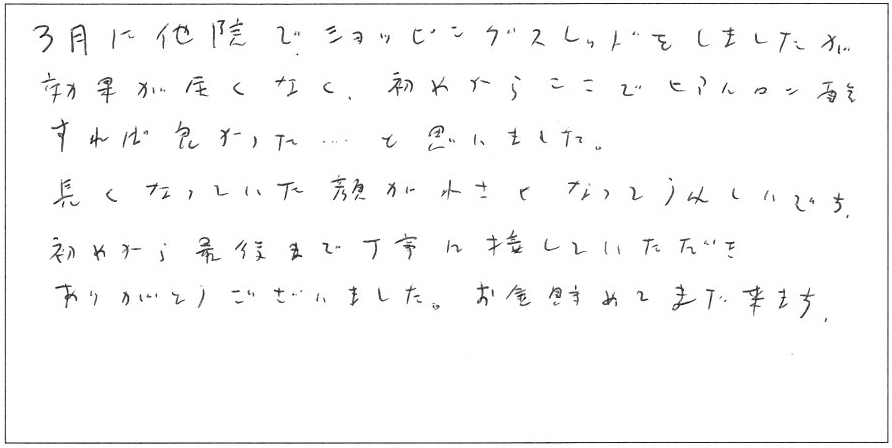 3月に他院でショッピングスレッドをしましたが
効果が全くなく、初めからここでヒアルロン酸
すれば良かった…と思いました。
長くなっていた顔が小さくなってうれしいです。
初めから最後まで丁寧に接していただき
ありがとうございました。お金貯めてまた来ます。